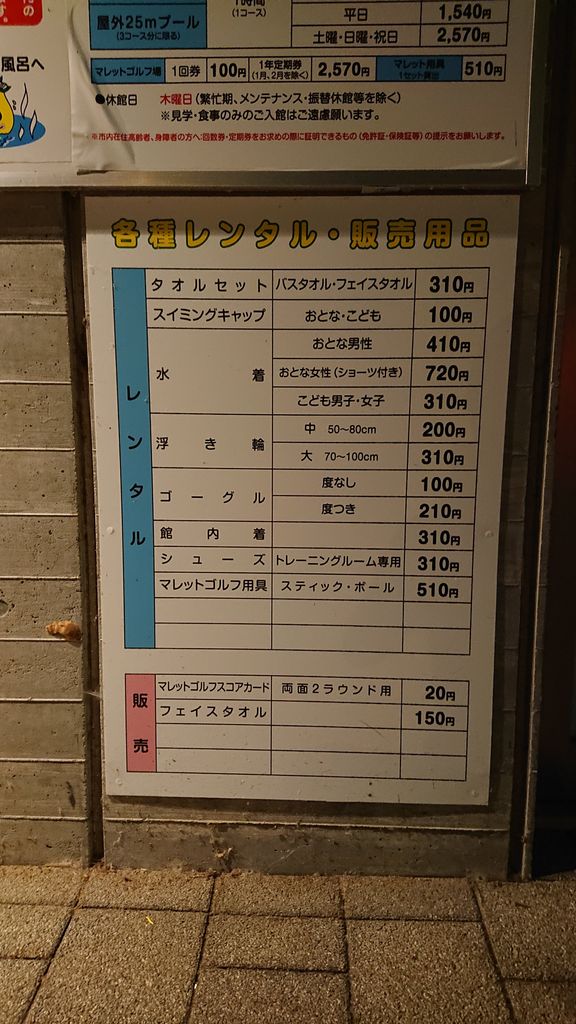 屋外25mプール
(3コース分に限る)
(1コース)
平日 1,540円
土曜・日曜・祝日 2,570円
マレットゴルフ場 1回券 100円 1年定期券 (1月、2月を除く) 2,570円 マレット用具 1セット貸出 510円
風呂へ
●休館日 木曜日(繁忙期、メンテナンス・振替休館等を除く)
※見学・食事のみのご入館はご遠慮願います。
※市内在住高齢者、身障者の方へ:回数券・定期券をお求めの際に証明できるもの(免許証・保険証等)の提示をお願いします。
各種レンタル・販売用品
レンタル
タオルセット バスタオル・フェイスタオル 310円
スイミングキャップ おとな・こども 100円
水着 おとな男性 410円
おとな女性(ショーツ付き) 720円
こども男子・女子 310円
浮き輪 中 50〜80cm 200円
大 70〜100cm 310円
ゴーグル 度なし 100円
度つき 210円
館内着 310円
シューズ トレーニングルーム専用 310円
マレットゴルフ用具 スティック・ボール 510円
販売
マレットゴルフスコアカード 両面2ラウンド用 20円
フェイスタオル 150円